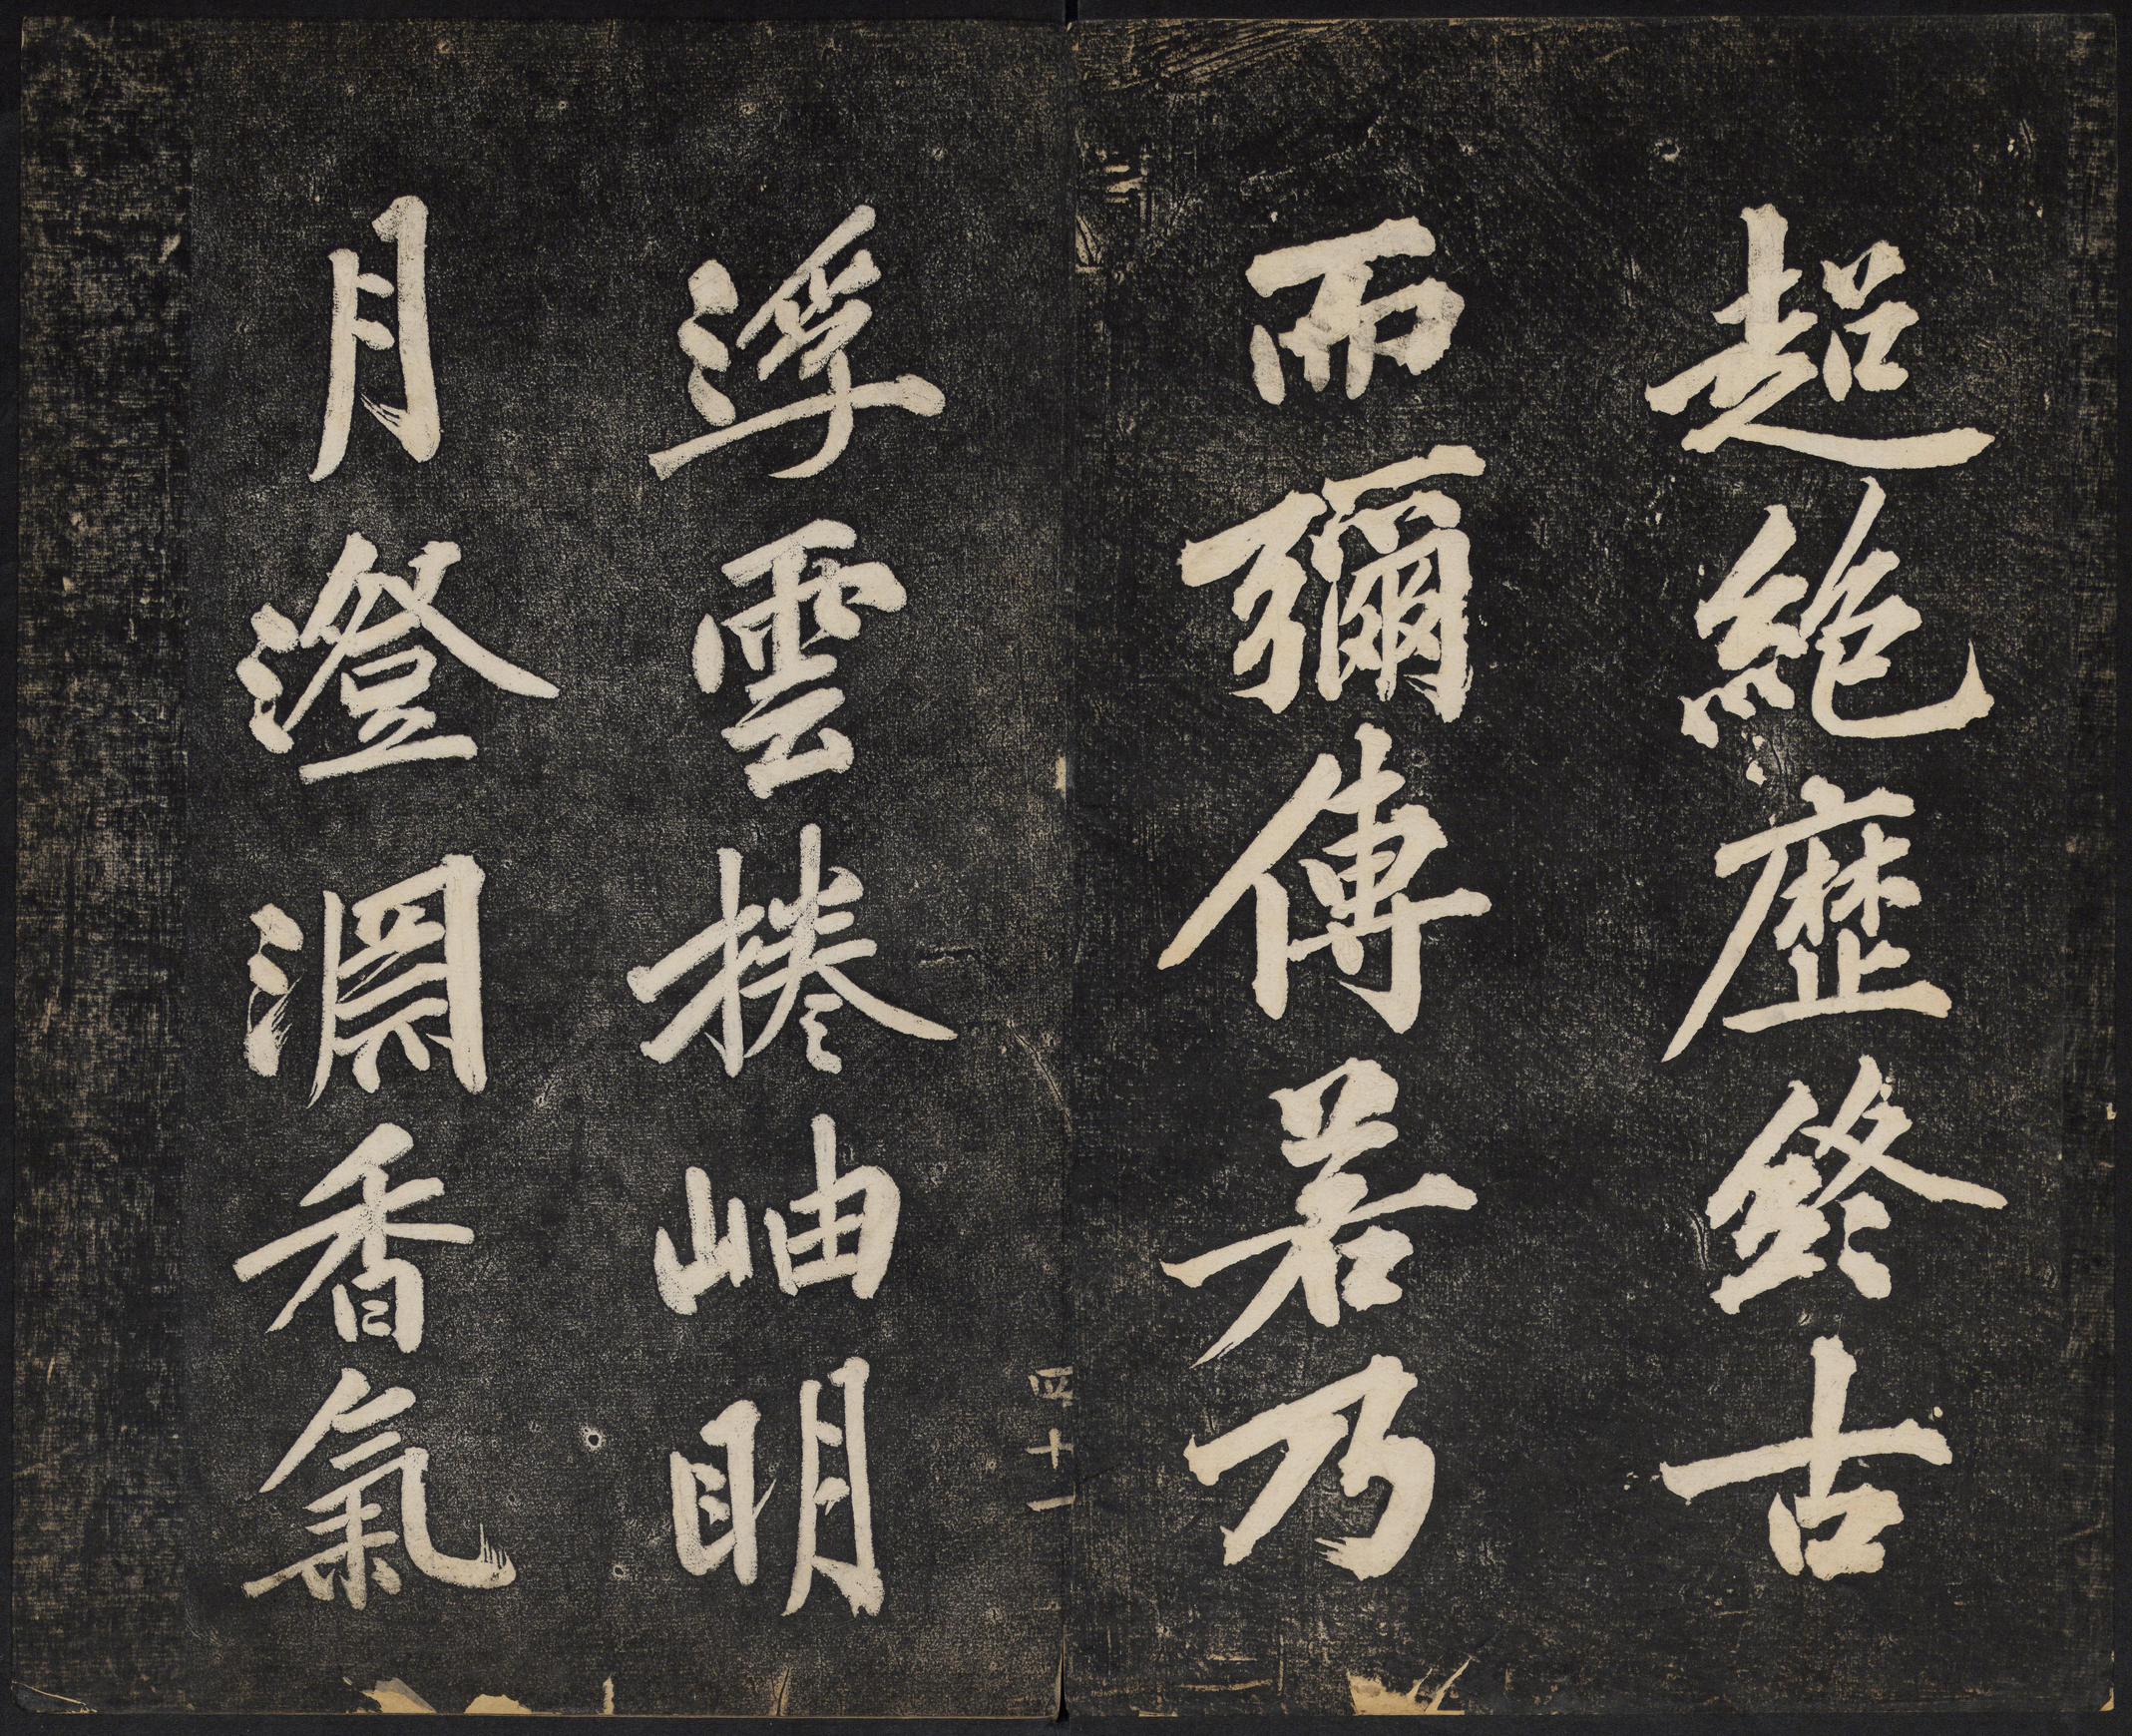 超絶歷終古
而彌傳若乃
浮雲捲岫明
月澄淵香氣
四十一